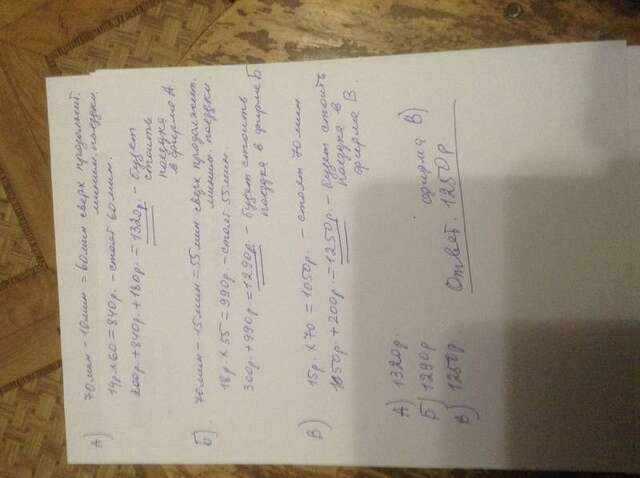 А) 70мин - 10мин = 60мин сверх продолжит.
миним. поездки.
14р. × 60 = 840р. - стоят 60мин.
300р + 840р. + 180р. = 1320р. - будет
стоить
поездка
в фирме А.
Б) 70мин - 15мин = 55мин сверх продолжит.
миним. поездки.
18р. × 55 = 990р. - стоят 55мин.
300р. + 990р. = 1290р. - будет стоить
поездка в фирме Б
В) 15р. × 70 = 1050р. - стоят 70мин
1050р. + 200р. = 1250р. - будет стоить
поездка в
фирме В.
А) 1320р
Б) 1290р
В) 1250р
фирма В)
Ответ. 1250р